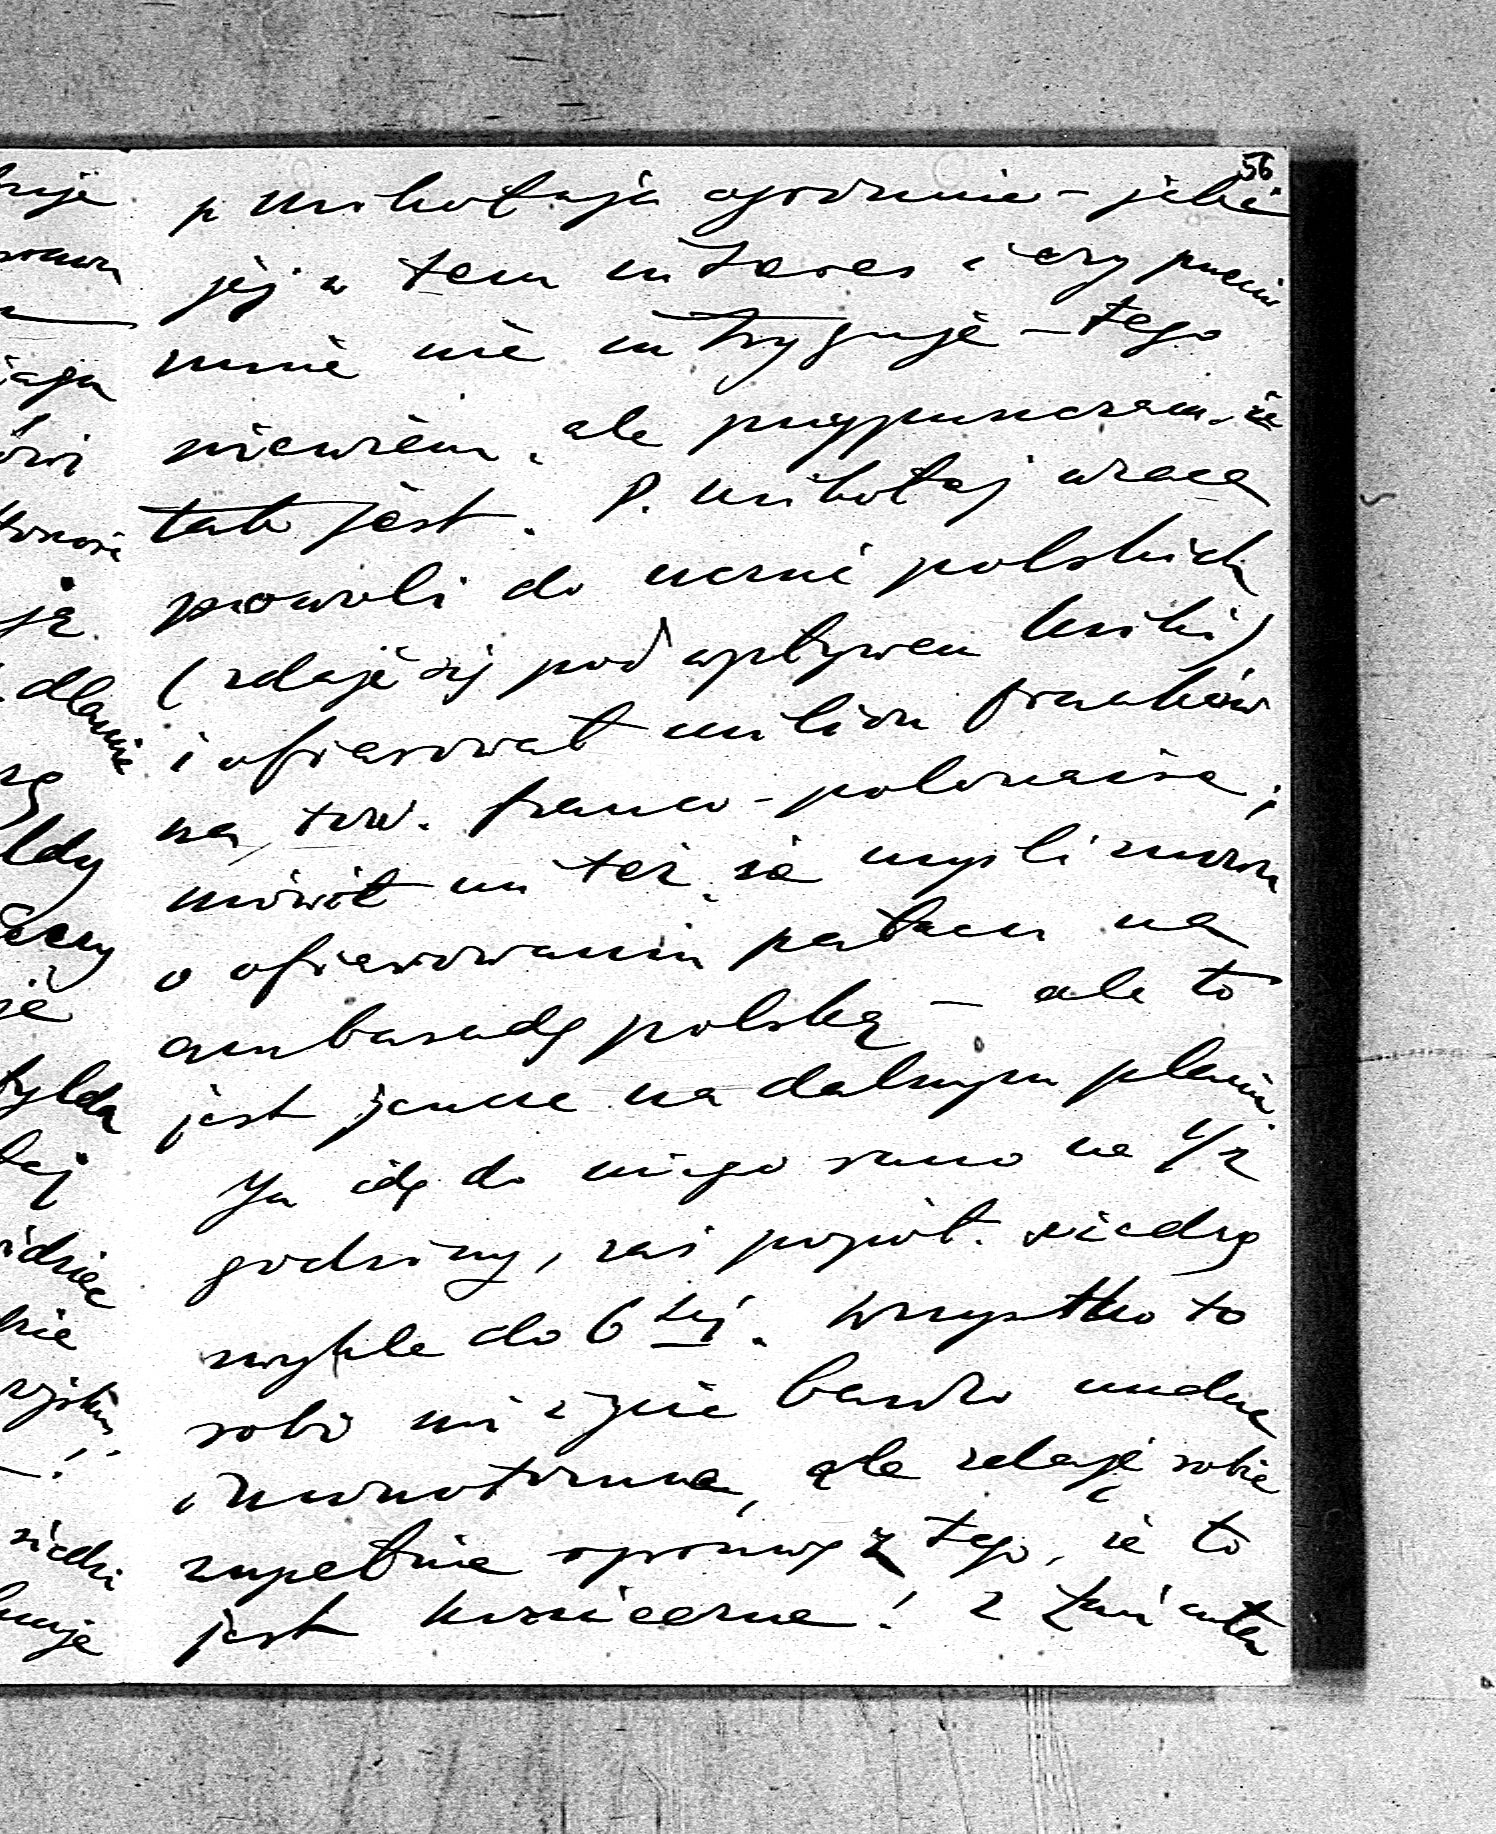 56
p Mikołaja ogromnie – jaki
jej w tem interes i czy przeciw
mnie nie intryguje – tego
niewiem, ale przypuszczam, że
tak jest. P. Mikołaj wraca
powoli do uczuć polskich
(zdaje się pod wpływem Miki)
i ofiarował milion franków
na tow. franco-polonaise;
mówił mi też, że myśli znowu
o ofiarowaniu pałacu na
ambasadę polską – ale to
jest jeszcze na dalszym planie
Ja idę do niego rano na 1/2
godziny, zaś popoł. siedzę
zwykle do 6 tej. Wszystko to
robi mi życie bardzo nudne
i monotonne, ale zdaję sobie
zupełnie sprawę z tego, że to
jest konieczne! Z